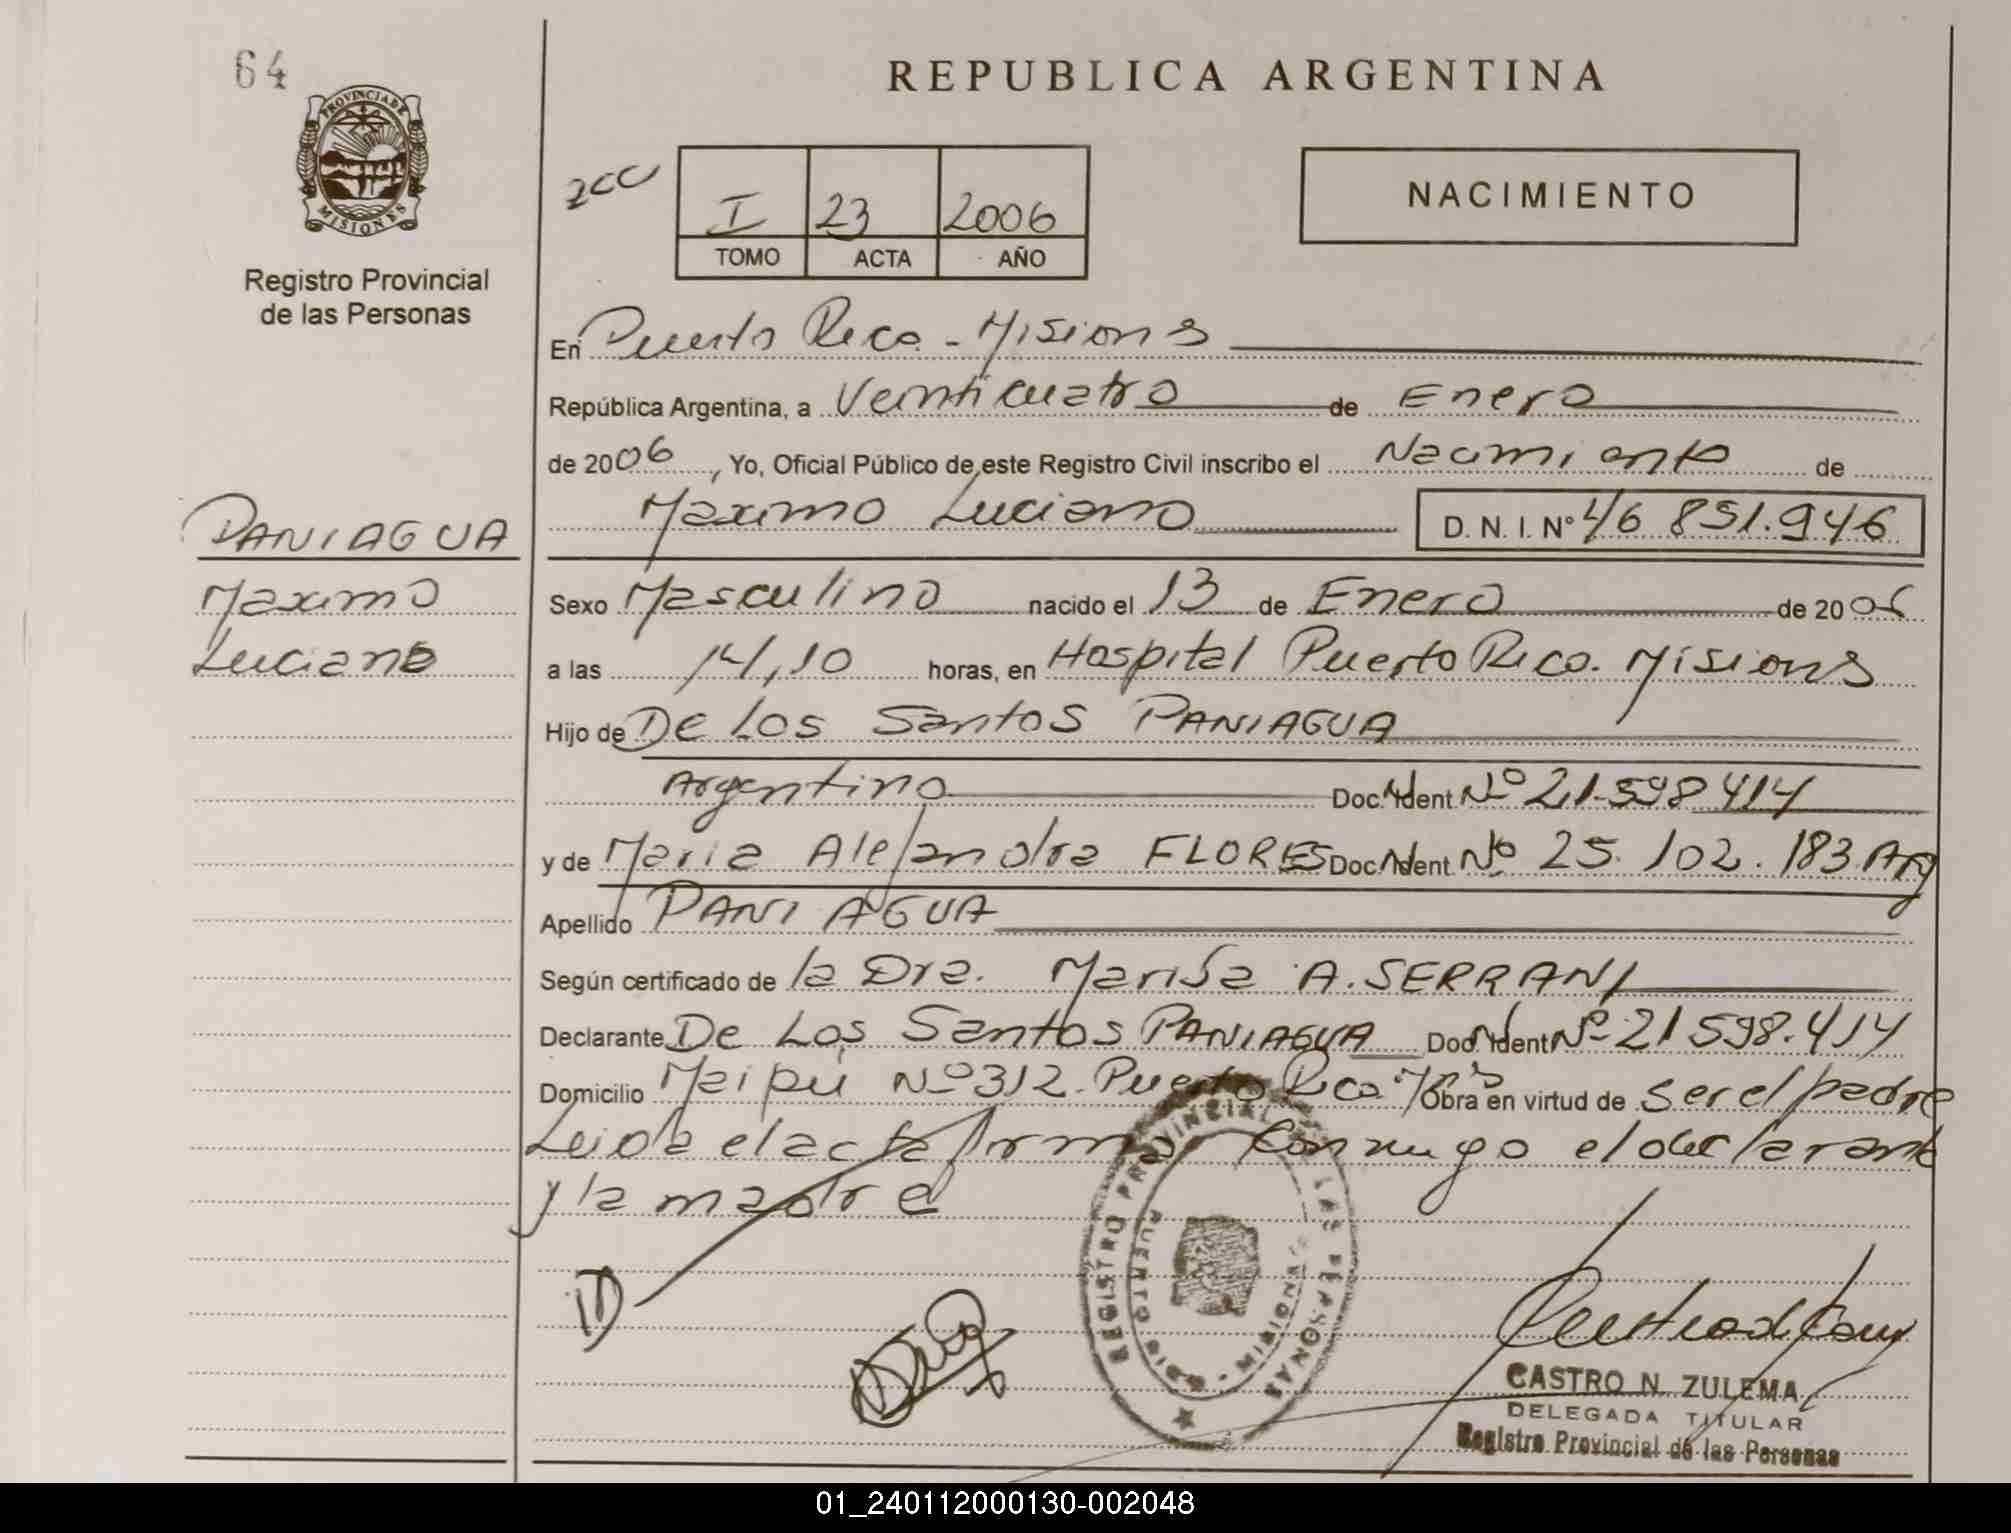 64
PROVINCIA DE
MISIONES
Registro Provincial
de las Personas
REPUBLICA ARGENTINA
I 23 2006
TOMO ACTA AÑO
NACIMIENTO
En Puerto Rico - Misiones
República Argentina, a Veinticuatro de Enero
de 2006, Yo, Oficial Público de este Registro Civil inscribo el Nacimiento de
Maximo Luciano D.N.I. Nº 46 851.946
PANIAGUA
Maximo
Luciano
Sexo Masculino nacido el 13 de Enero de 2006
a las 14,10 horas, en Hospital Puerto Rico. Misiones
Hijo de De Los Santos PANIAGUA
Argentino Doc. Ident Nº 21.598 414
y de Maria Alejandra FLORES Doc. Ident. Nº 25.102.183 Arg
Apellido PANIAGUA
Según certificado de la Dra. Marisa A. SERRANI
Declarante De Los Santos PANIAGUA Doc. Ident Nº 21 598.414
Domicilio Maipú Nº 312. Puerto Rico Obra en virtud de ser el padre
Leida el acta firma conmigo el declarante
y la madre
REGISTRO PROVINCIAL DE LAS PERSONAS
PUERTO RICO - MISIONES
CASTRO N. ZULEMA
DELEGADA TITULAR
Registro Provincial de las Personas
01_240112000130-002048